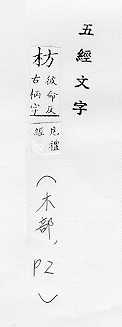 五經文字
枋
彼命反
古柄字
見禮
經
（木部，P2）